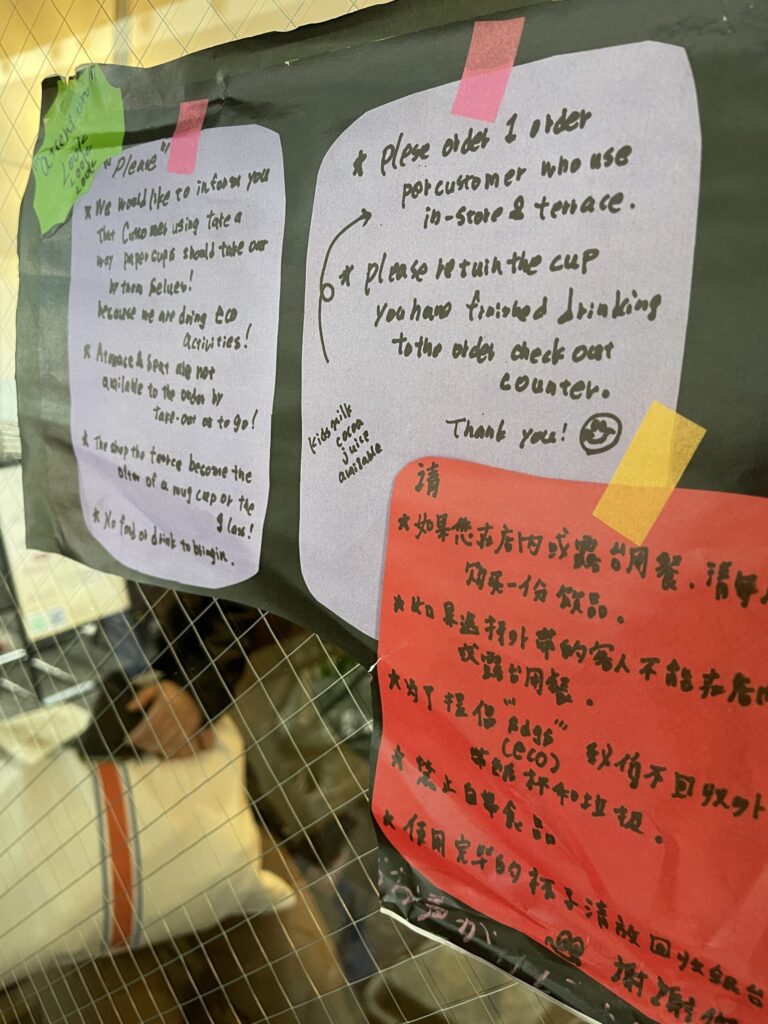 "attention"
Look
Look
Look
"please"
* We would like to inform you
that Customer using take a
way paper cups should take out
by them selues!
because we are doing Eco
activities!
* A terrace & seat are not
available to the order by
take-out or to go!
* The shop the terrce become the
of a mug cup or the
glass!
* No food or drink to bringin.
* plese order 1 order
per customer who use
in-store & terrace.
* please return the cup
you have finished drinking
to the order check out
counter.
Thank you!
kids milk
cocoa
juice
available
请
* 如果您在店内或露台用餐，请每
购买一份饮品。
* 如果选择外带的客人不能在店内
或露台用餐。
* 为了提倡
(eco)
不回收外
* 禁止自带食品
* 使用完毕的杯子请放回收银台
谢谢